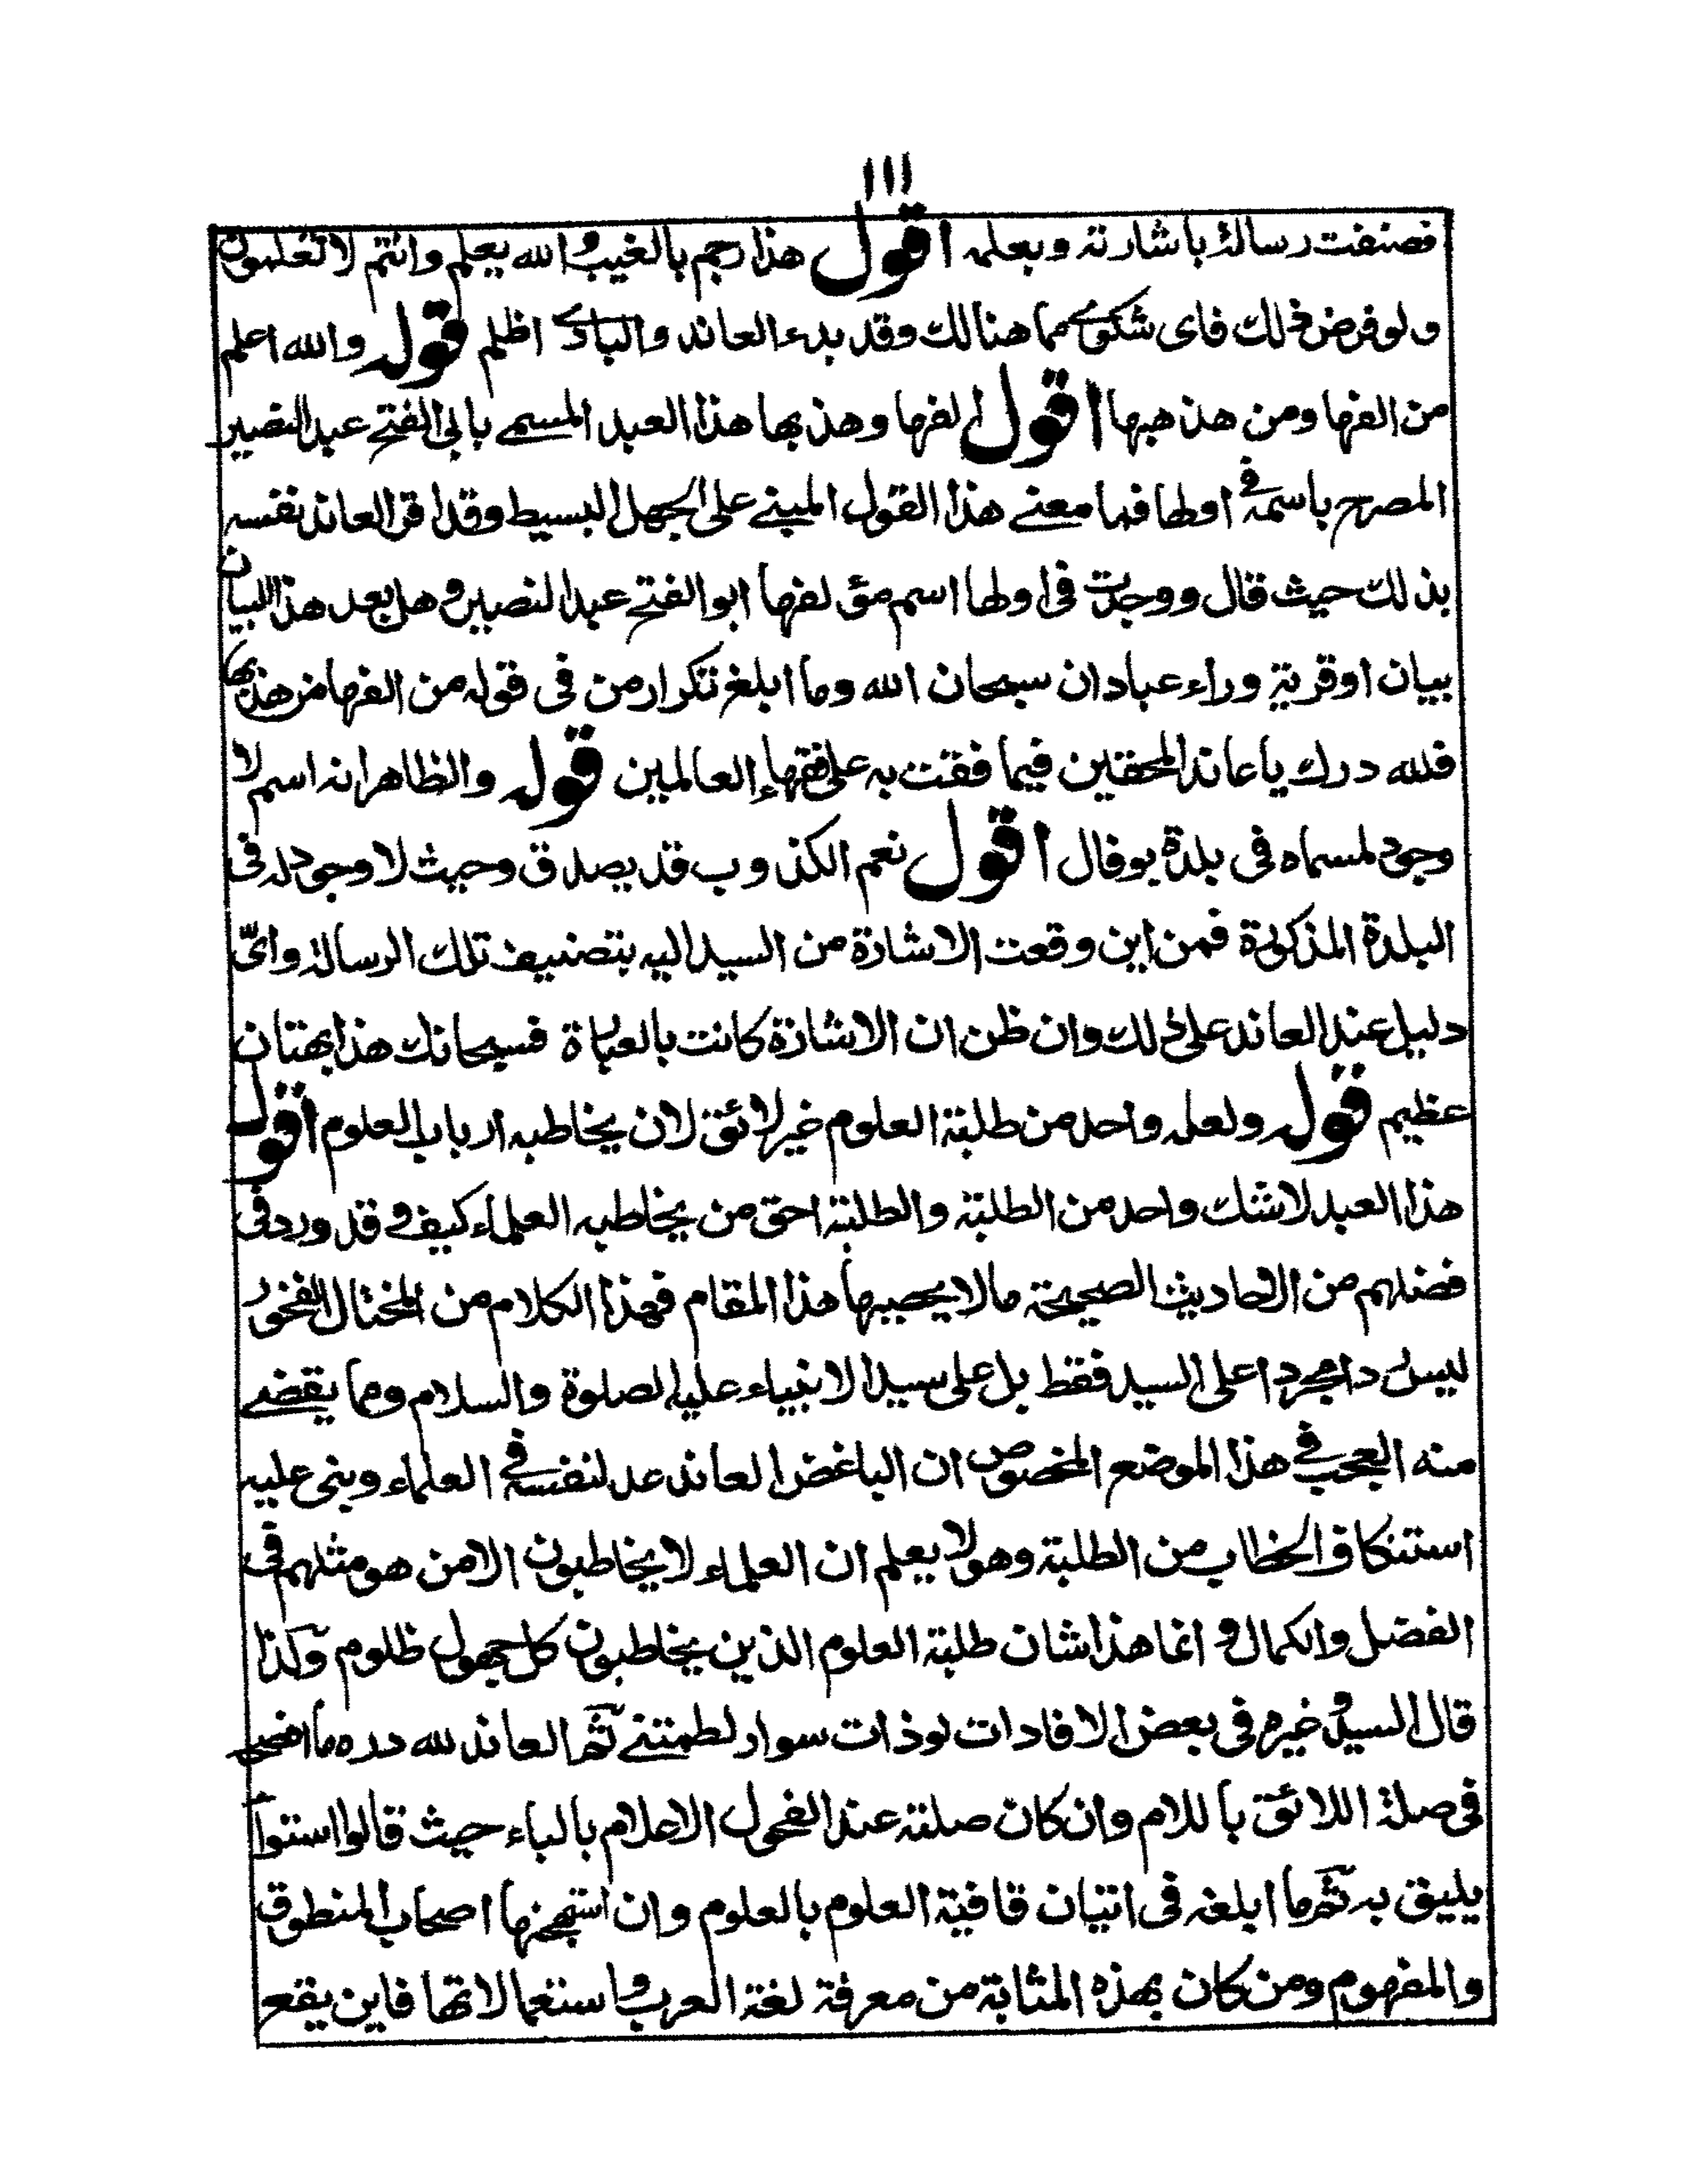 ١١١
فصنفت رسالة باشارته وبعلمه اقول هذا رجم بالغيب والله يعلم وانتم لا تعلمون
ولو فرض ذلك فاى شكوى مما هنالك وقد بدء العاند والبادى اظلم قوله والله اعلم
من الفها ومن هذبها اقول الفها وهذبها هذا العبد المسمى بابى الفتح عبد النصير
المصرح باسمه فى اولها فما معنى هذا القول المبنى على الجهل البسيط وقد اقر العاند نفسه
بذلك حيث قال ووجدت فى اولها اسم مؤلفها ابو الفتح عبد النصير وهل بعد هذا البيان
بيان او قرية وراء عبادان سبحان الله وما ابلغ تكرار من فى قوله من الفها من هذبها
فلله درك يا عاند المحققين فيما فقت به على فقهاء العالمين قوله والظاهر انه اسم لا
وجود لمسماه فى بلدة بوفال اقول نعم الكذوب قد يصدق وحيث لا وجود له فى
البلدة المذكورة فمن اين وقعت الاشارة من السيد اليه بتصنيف تلك الرسالة واىّ
دليل عند العاند على ذلك وان ظن ان الاشارة كانت بالعبارة فسبحانك هذا بهتان
عظيم قوله ولعله واحد من طلبة العلوم غير لائق لان يخاطبه ارباب العلوم اقول
هذا العبد لا شك واحد من الطلبة والطلبة احق من يخاطبه العلماء كيف وقد ورد فى
فضلهم من الاحاديث الصحيحة ما لا يحصيها هذا المقام فهذا الكلام من المختال الفخور
ليس ردا مجردا على السيد فقط بل على سيد الانبياء عليه الصلوة والسلام ومما يقضى
منه العجب فى هذا الموضع المخصوص ان الباغض العاند عد لنفسه فى العلماء وبنى عليه
استنكاف الخطاب من الطلبة وهو لا يعلم ان العلماء لا يخاطبون الا من هو مثلهم فى
الفضل والكمال وانما هذا شان طلبة العلوم الذين يخاطبون كل جهول ظلوم وكذا
قال السيد وغيره فى بعض الافادات لو ذات سوار لطمتنى ثم العاند لله دره ما افصح
فى صلة اللائق باللام وان كان صلته عند الفحول الاعلام بالباء حيث قالوا استوا
يليق به ثم ما ابلغه فى اتيان قافية العلوم بالعلوم وان استهجنها اصحاب المنطوق
والمفهوم ومن كان بهذه المثابة من معرفة لغة العرب واستعمالاتها فاين يقع